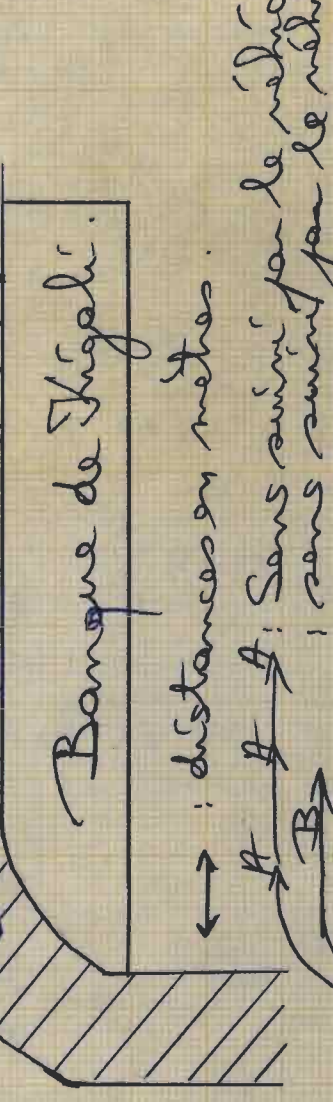 Banque de Kigali.
: distances en mètres.
A A A : Sens suivi par le
B : sens suivi par le